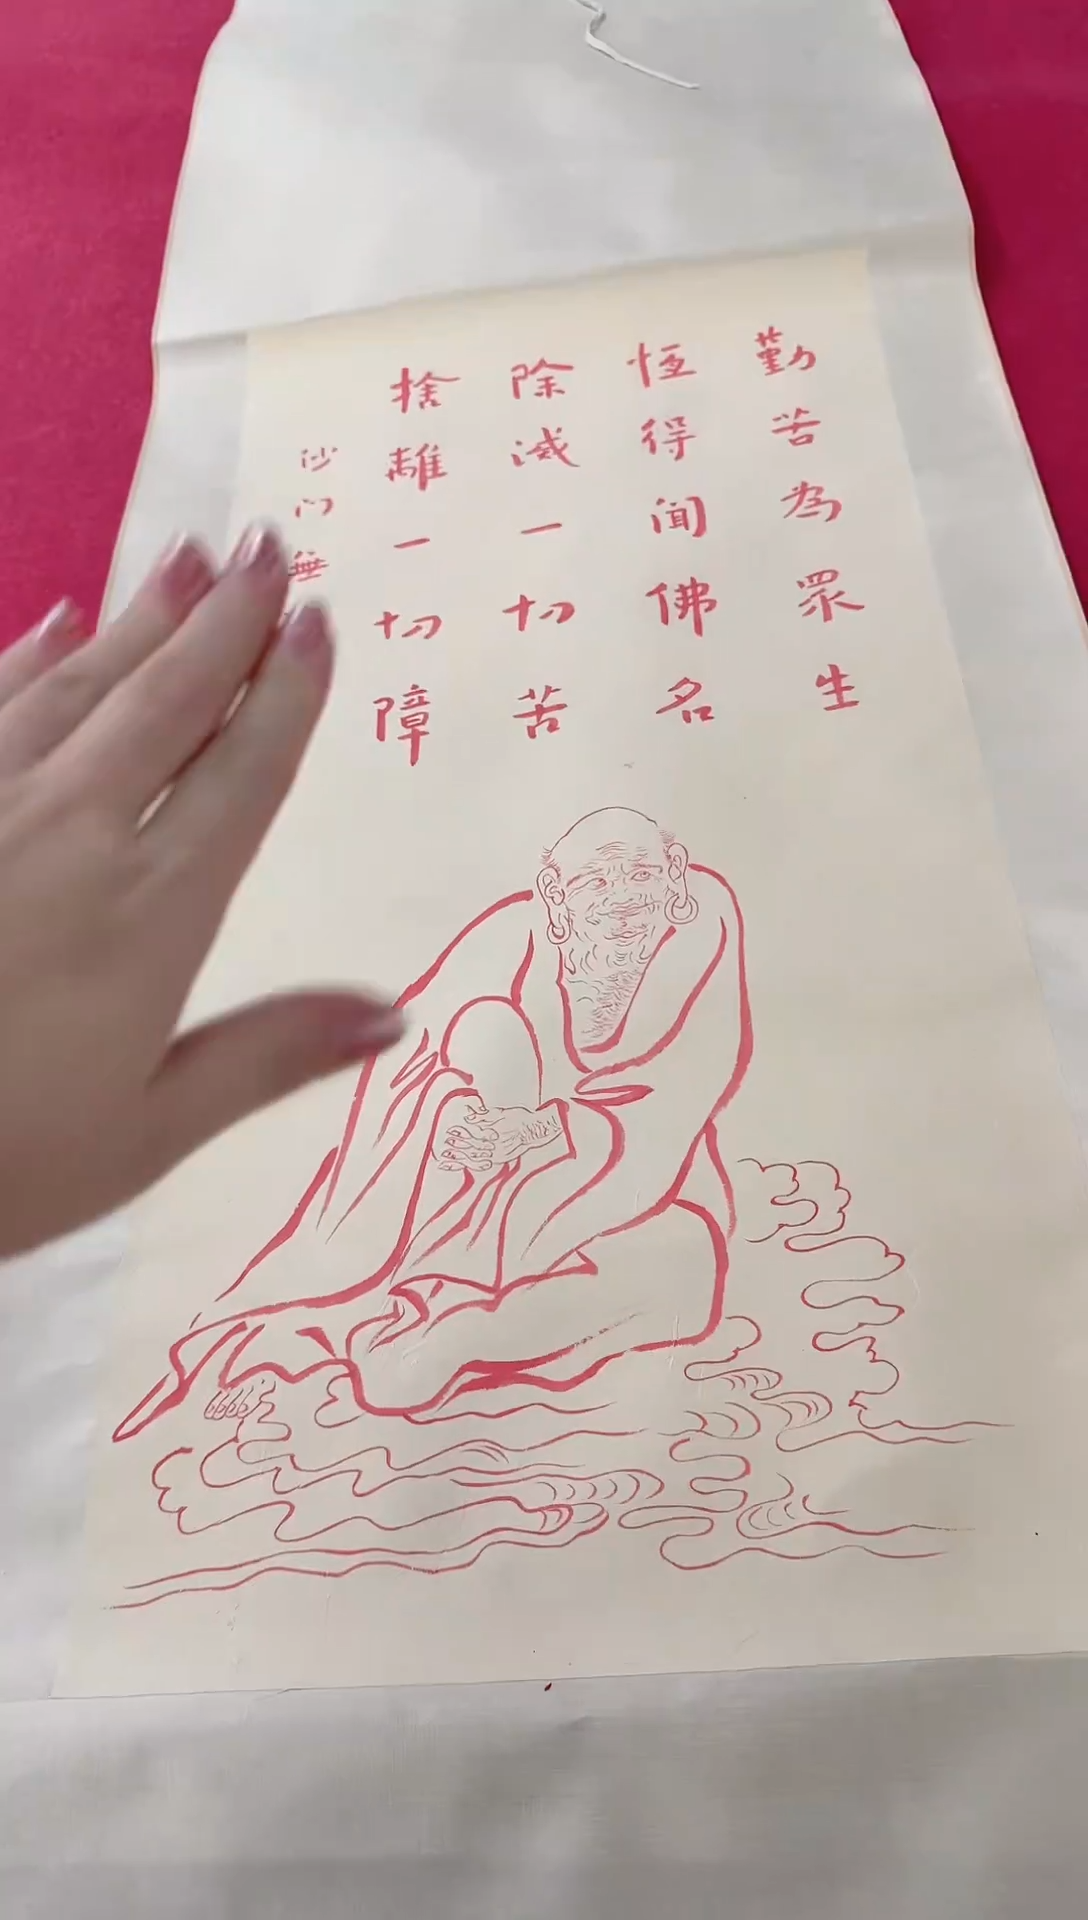 勤苦為眾生
恆得聞佛名
除滅一切苦
捨離一切障
沙門無